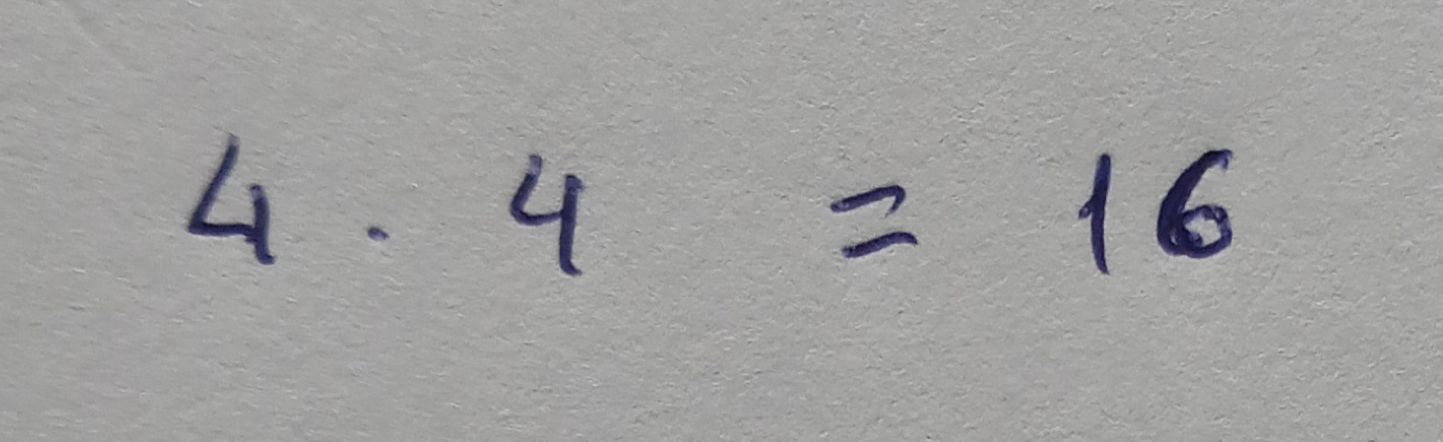 4 . 4 = 16